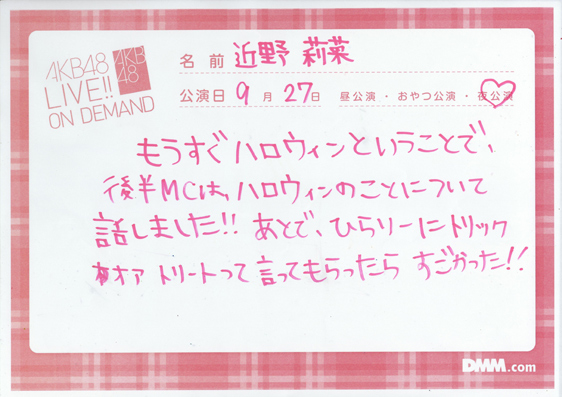 AKB48
LIVE!!
ON DEMAND
AKB
48
名前 近野 莉菜
公演日 9月27日 昼公演・おやつ公演・夜公演
もうすぐハロウィンということで、
後半MCは、ハロウィンのことについて
話しました!! あとで、ひらりーにトリック
オア トリートって言ってもらったら すごかった!!
DMM.com